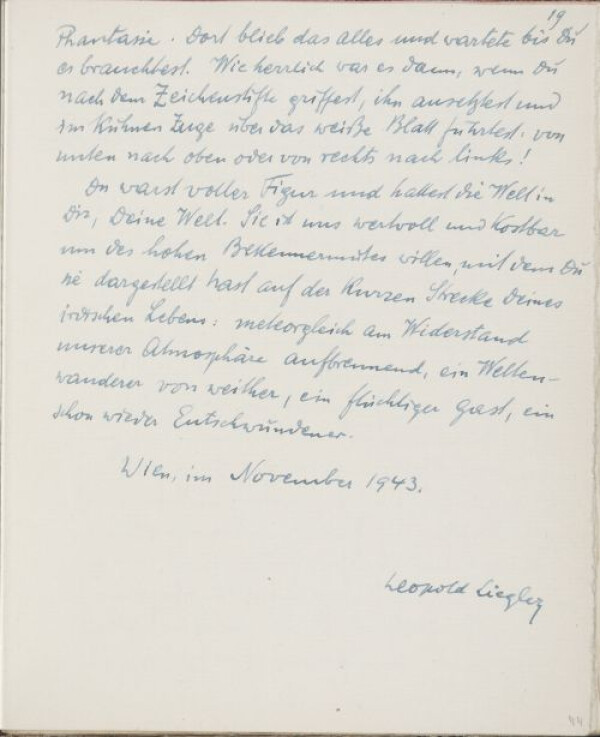 19
Phantasie. Dort blieb das alles und wartete bis Du
es brauchtest. Wie herrlich war es dann, wenn Du
nach dem Zeichenstifte griffest, ihn ansetztest und
im kühnen Zuge über das weiße Blatt führtest: von
unten nach oben oder von rechts nach links!
Du warst voller Figur und hattest die Welt in
Dir, Deine Welt. Sie ist uns wertvoll und kostbar
um des hohen Bekennermutes willen, mit dem Du
sie dargestellt hast auf der kurzen Strecke Deines
irdischen Lebens: meteorgleich am Widerstand
unserer Atmosphäre aufbrennend, ein Welten-
wanderer von weither, ein flüchtiger Gast, ein
schon wieder Entschwundener.
Wien, im November 1943.
Leopold Liegler
44